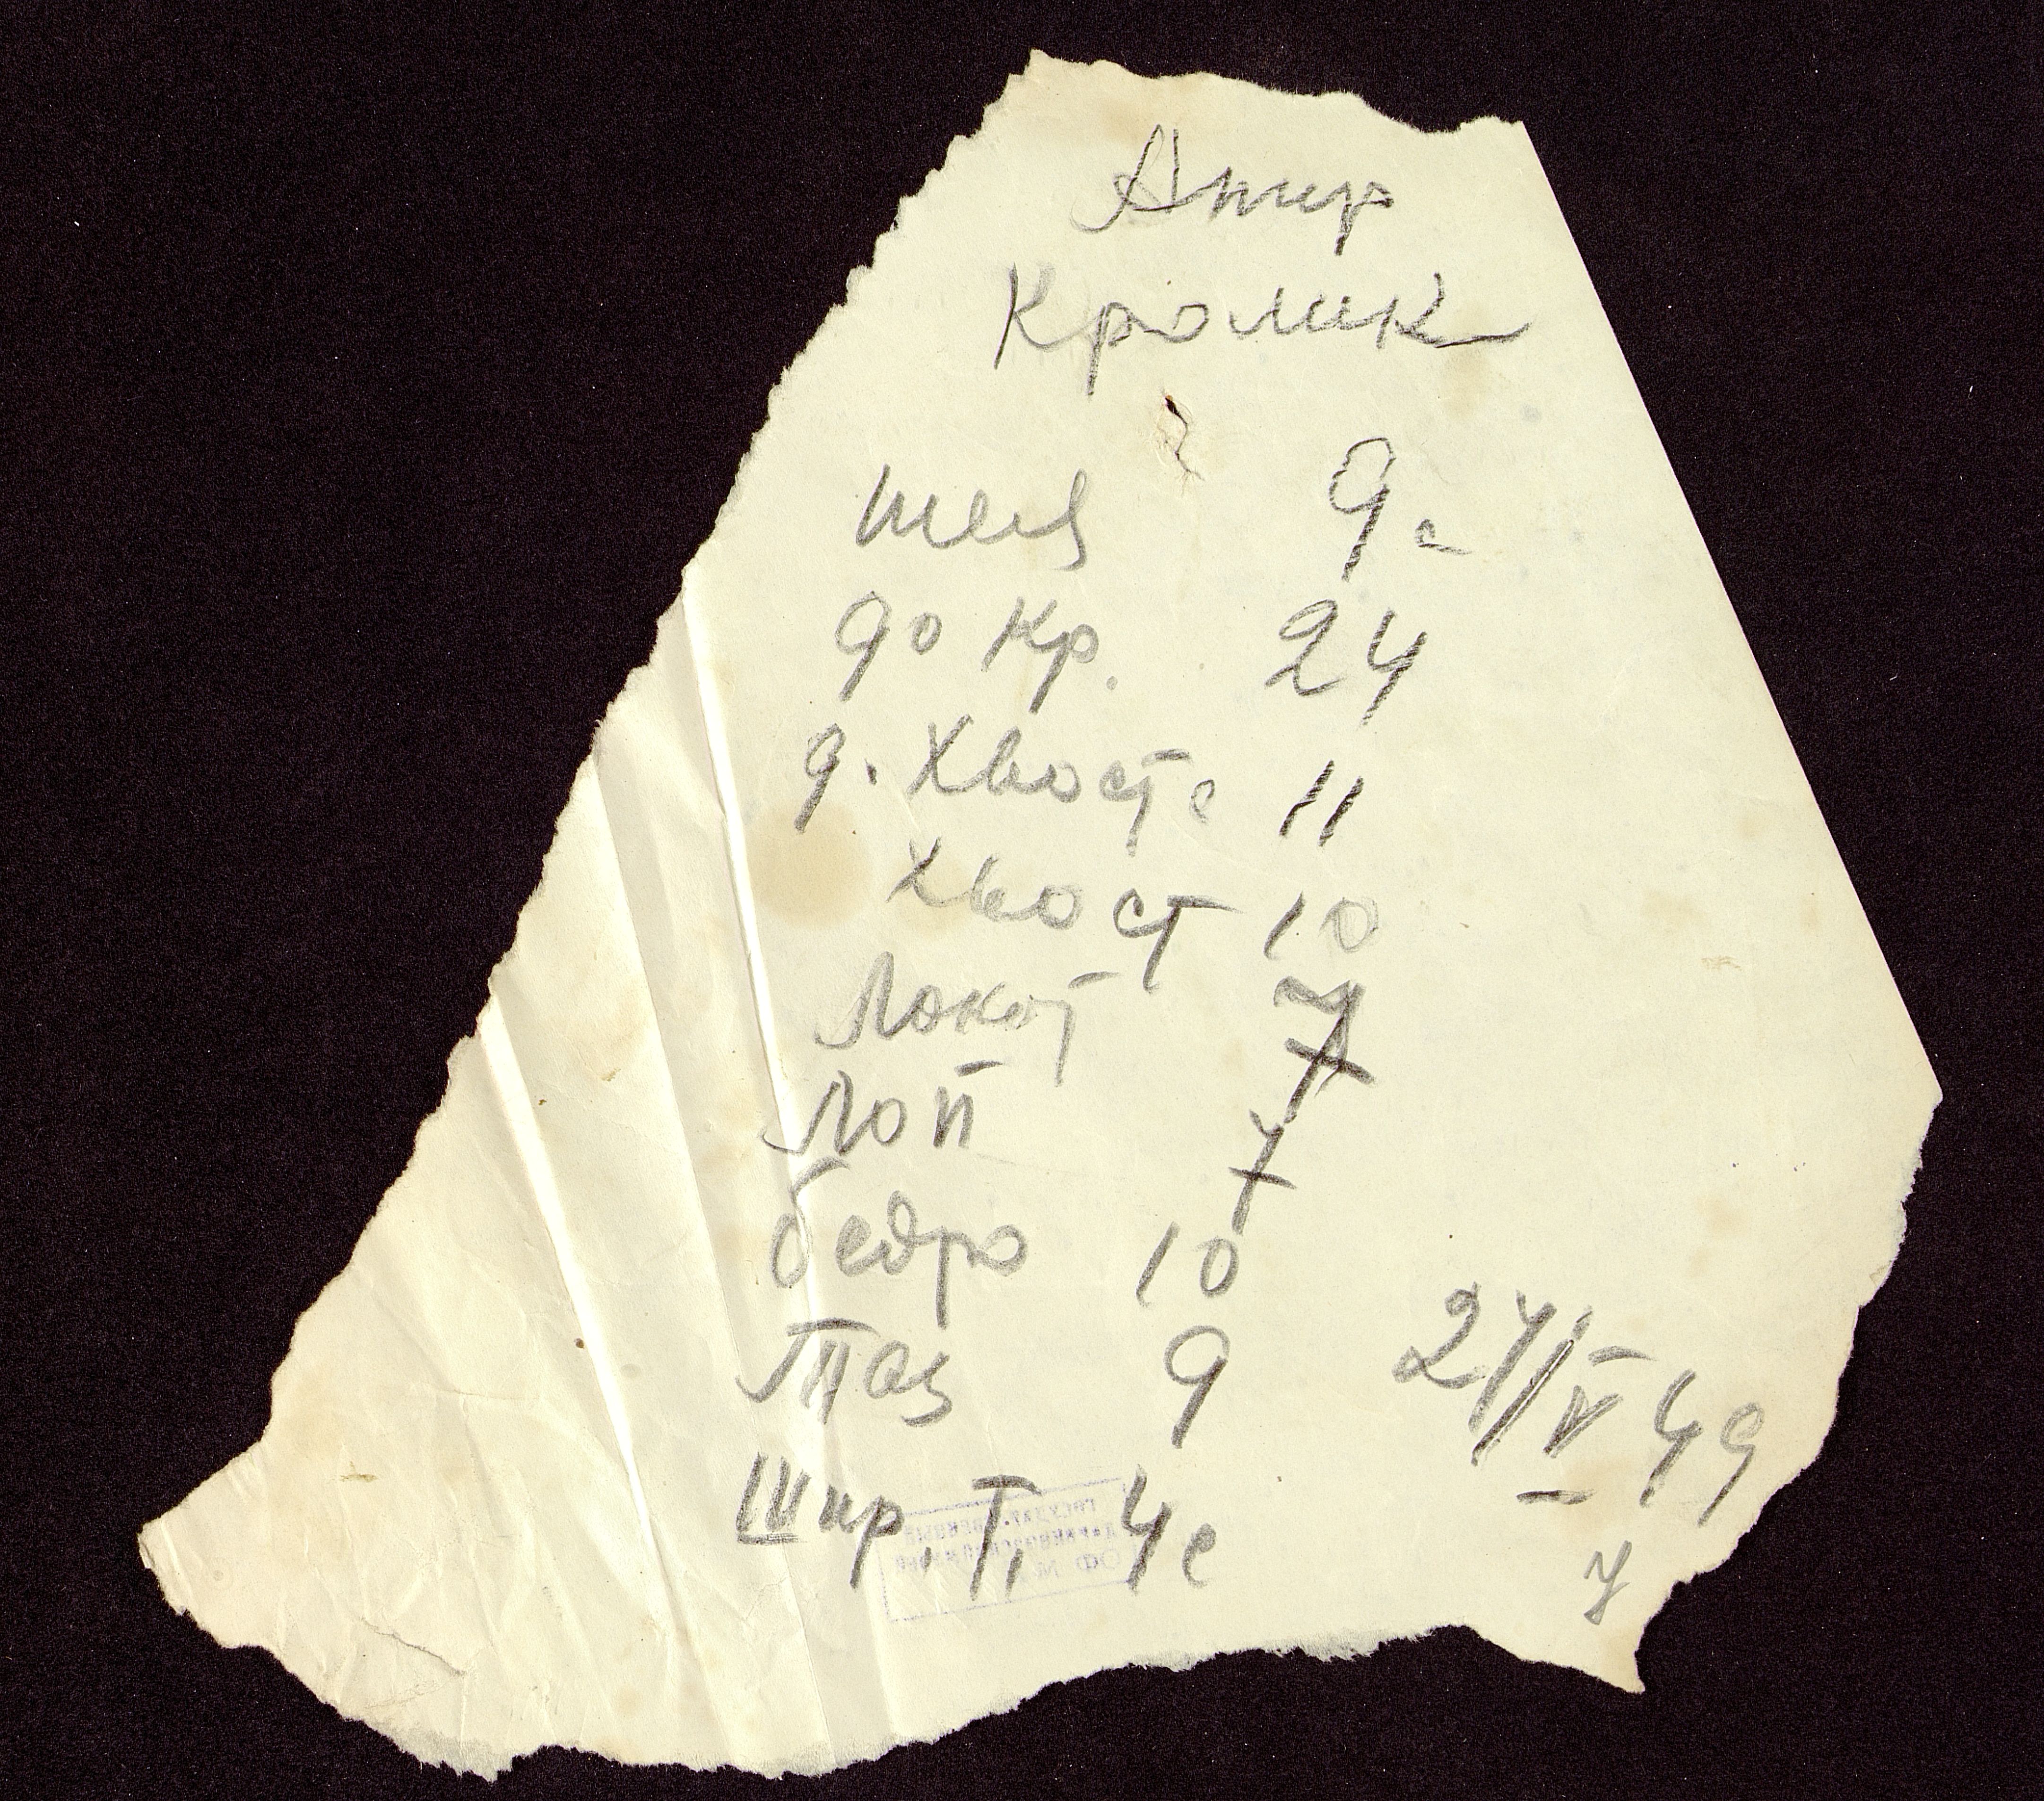 Кролик
шея 9 с
до кр. 24
д. хвоста 11
хвост 10
Локот 7
Лоп 7
бедро 10
Таз 9
Шир. Т. 4 с
24/V 49